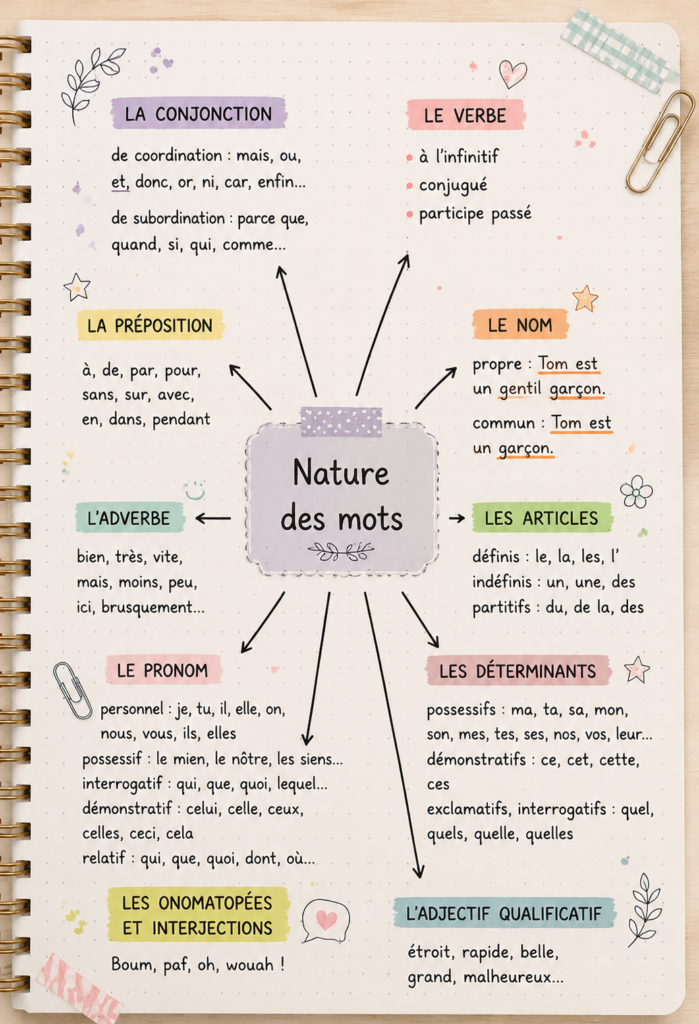 LA CONJONCTION
de coordination : mais, ou,
et, donc, or, ni, car, enfin...
de subordination : parce que,
quand, si, qui, comme...
LE VERBE
à l'infinitif
conjugué
participe passé
LA PRÉPOSITION
à, de, par, pour,
sans, sur, avec,
en, dans, pendant
LE NOM
propre : Tom est
un gentil garçon.
commun : Tom est
un garçon.
Nature
des mots
L'ADVERBE
bien, très, vite,
mais, moins, peu,
ici, brusquement...
LES ARTICLES
définis : le, la, les, l'
indéfinis : un, une, des
partitifs : du, de la, des
LE PRONOM
personnel : je, tu, il, elle, on,
nous, vous, ils, elles
possessif : le mien, le nôtre, les siens...
interrogatif : qui, que, quoi, lequel...
démonstratif : celui, celle, ceux,
celles, ceci, cela
relatif : qui, que, quoi, dont, où...
LES DÉTERMINANTS
possessifs : ma, ta, sa, mon,
son, mes, tes, ses, nos, vos, leur...
démonstratifs : ce, cet, cette,
ces
exclamatifs, interrogatifs : quel,
quels, quelle, quelles
LES ONOMATOPÉES
ET INTERJECTIONS
Boum, paf, oh, wouah !
L'ADJECTIF QUALIFICATIF
étroit, rapide, belle,
grand, malheureux...